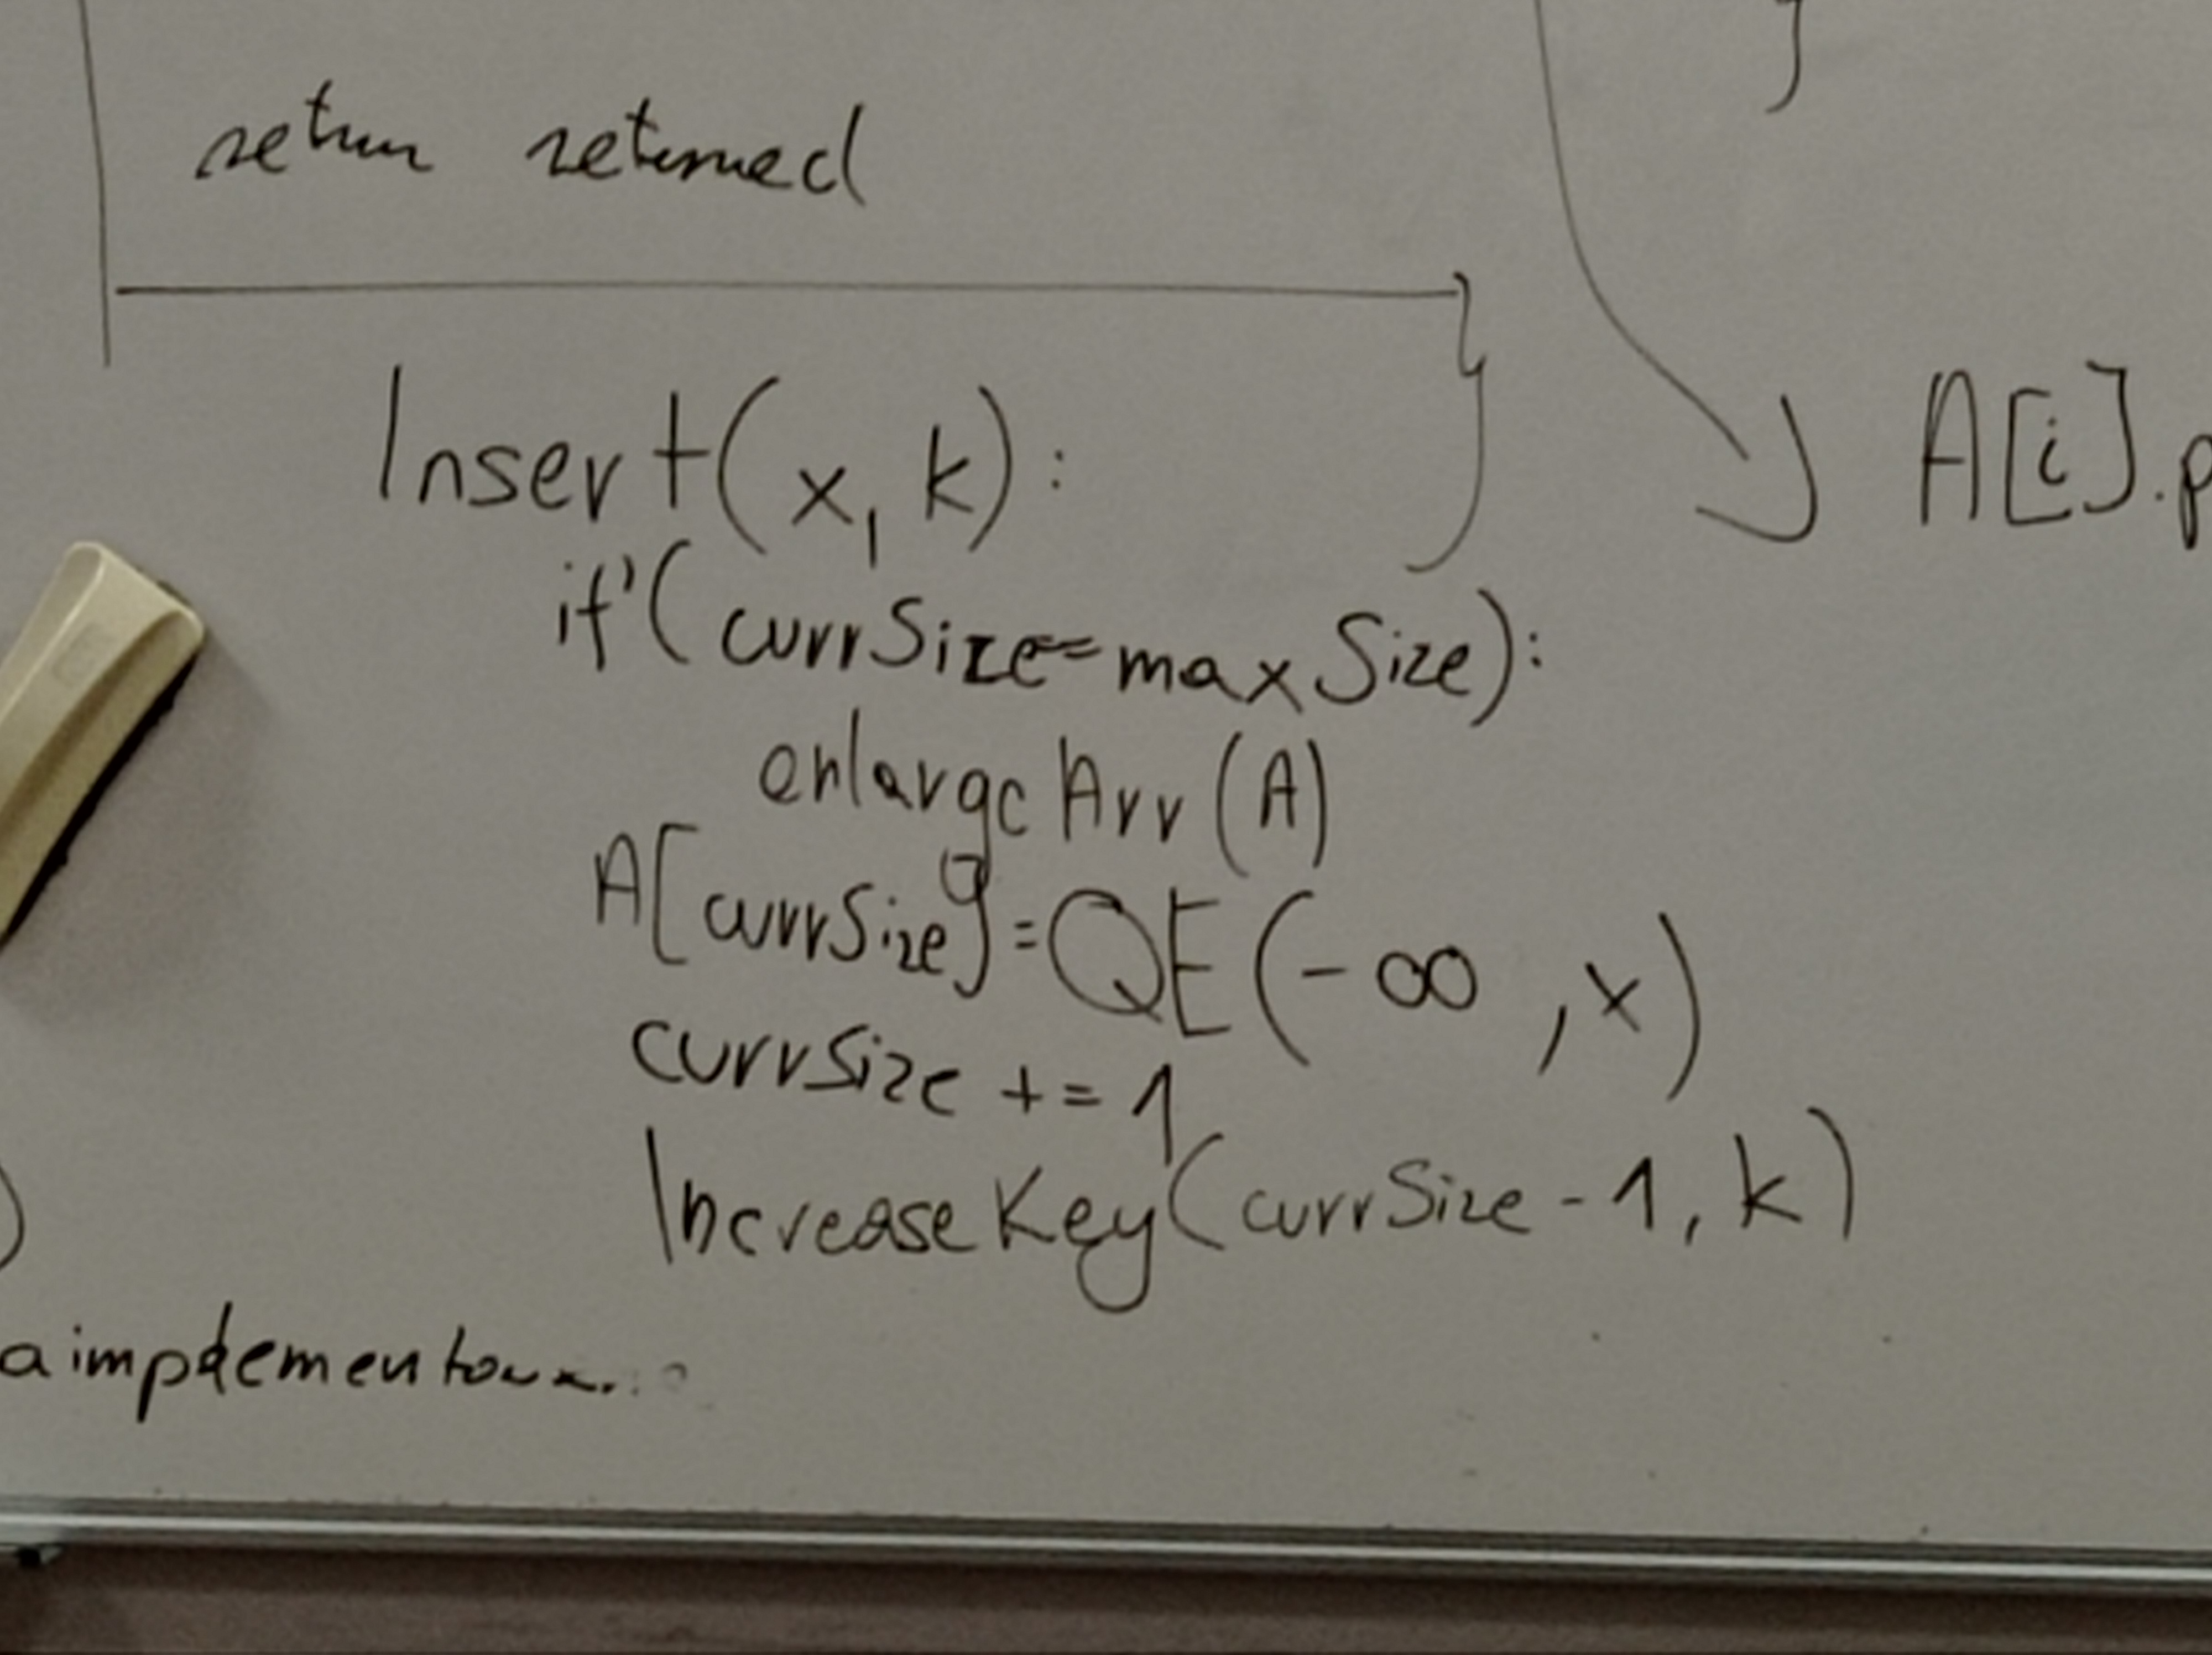 return returned
Insert(x, k):
if (currSize==maxSize):
enlargeArr(A)
A[currSize]=QE(-∞, x)
currSize += 1
IncreaseKey(currSize-1, k)
A[i].p
}
)